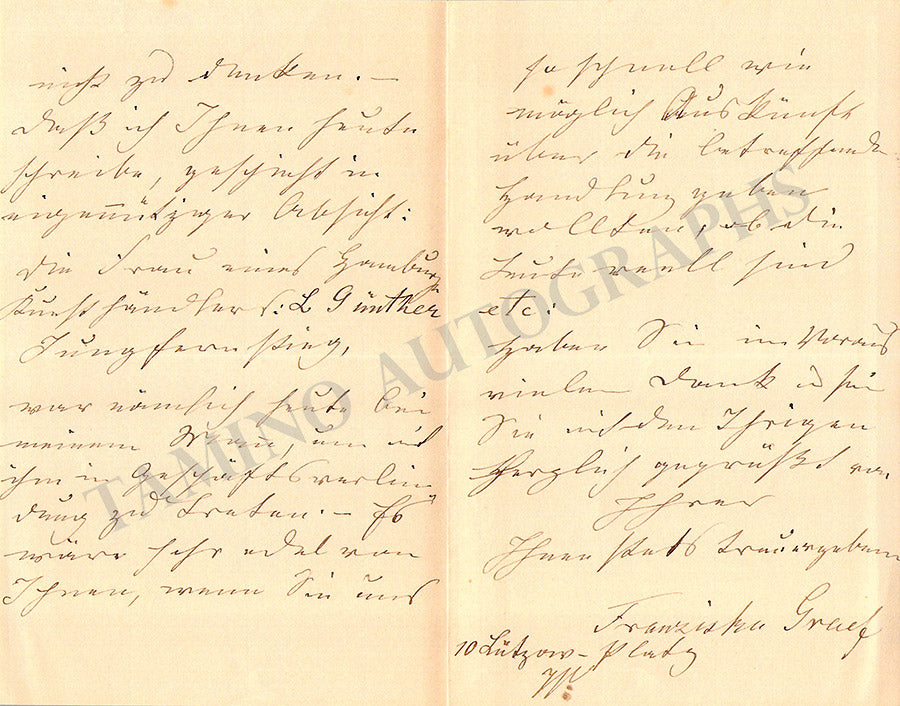 nicht zu denken. —
Daß ich Ihnen heute
schreibe, geschieht in
eigennütziger Absicht:
Die Frau eines Hamburger
Kunsthändlers: L Günther
Jungfernstieg,
war nämlich heute bei
meinem Mann, um mit
ihm in Geschäftsverbin
dung zu treten. — Es
wäre sehr edel von
Ihnen, wenn Sie uns
so schnell wie
möglich Auskunft
über die betreffende
Handlung geben
wollten, ob die
Leute reell sind
etc:
Haben Sie im Voraus
vielen Dank u sein
Sie mit den Ihrigen
herzlich gegrüßt von
Ihrer
Ihnen stets treuergebenen
Franziska Graef
10 Lützow-Platz
TAMINO AUTOGRAPHS